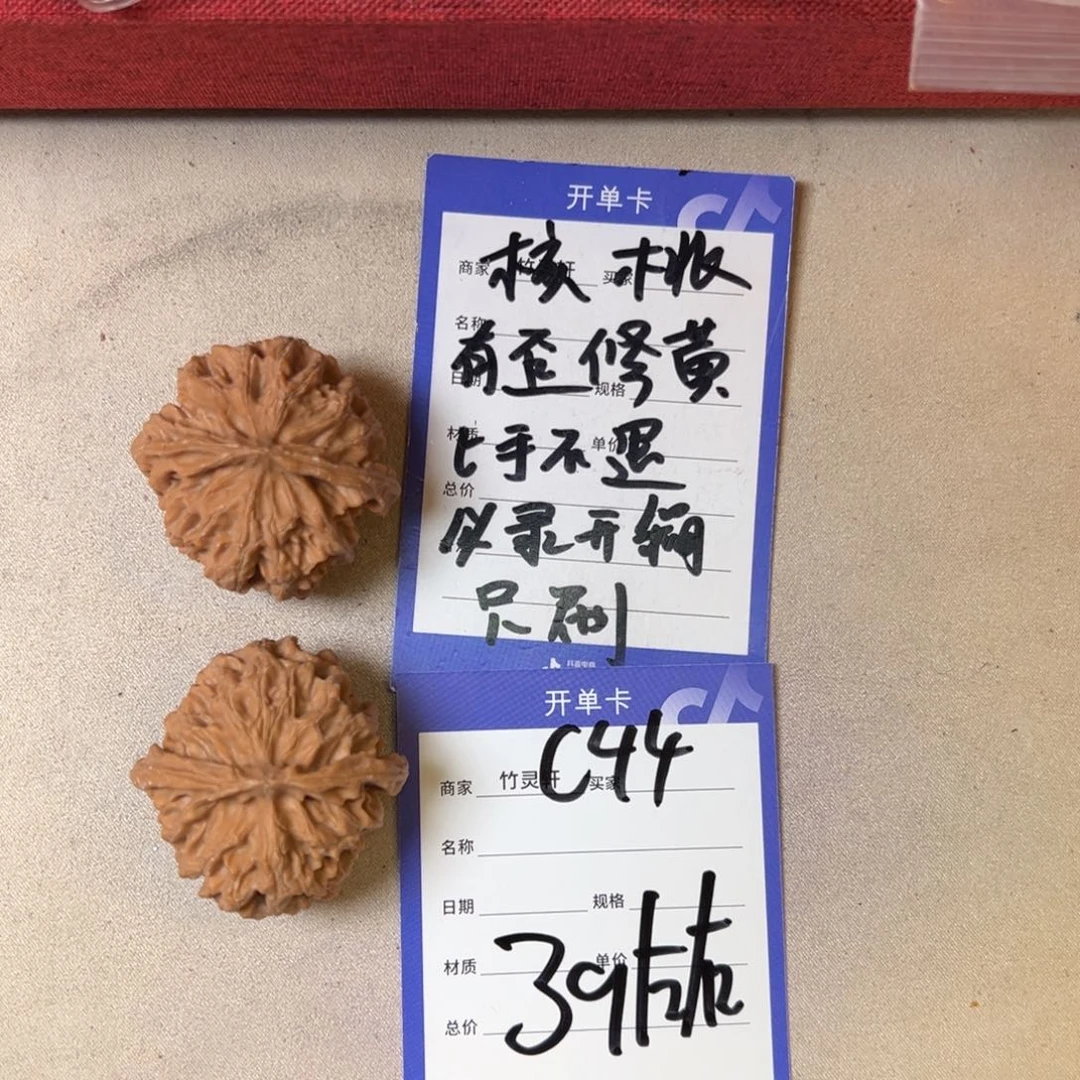 开单卡
核桃
商家 竹灵轩 买家
名称
有歪修黄
日期 规格
上手不退
材质 单价
总价
以录开编
尺刷
开单卡
C44
商家 竹灵轩 买家
名称
日期 规格
39左右
材质 单价
总价